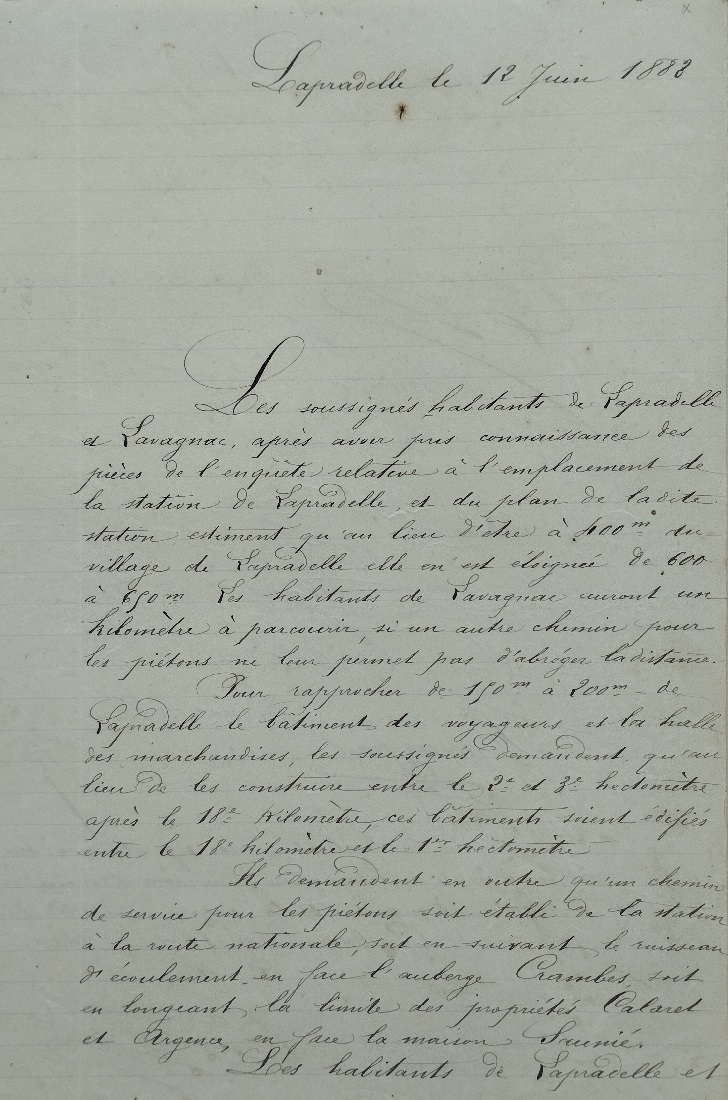 Lapradelle le 12 Juin 1883
Les soussignés habitants de Lapradelle
et Lavagnac, après avoir pris connaissance des
pièces de l'enquête relative à l'emplacement de
la station de Lapradelle et du plan de ladite
station estiment qu'au lieu d'être à 400 m du
village de Lapradelle elle en est éloignée de 600
à 650 m Les habitants de Lavagnac auront un
kilomètre à parcourir, si un autre chemin pour
les piétons ne leur permet pas d'abréger la distance.
Pour rapprocher de 150 m à 200 m de
Lapradelle le bâtiment des voyageurs et la halle
des marchandises, les soussignés demandent qu'au
lieu de les construire entre le 2e et 3e hectomètre
après le 18e Kilomètre, ces bâtiments soient édifiés
entre le 18e kilomètre et le 1er hectomètre
Ils demandent en outre qu'un chemin
de service pour les piétons soit établi de la station
à la route nationale, soit en suivant le ruisseau
d'écoulement en face l'auberge Crambes, soit
en longeant la limite des propriétés Calaret
et Argence, en face la maison Saunié.
Les habitants de Lapradelle et